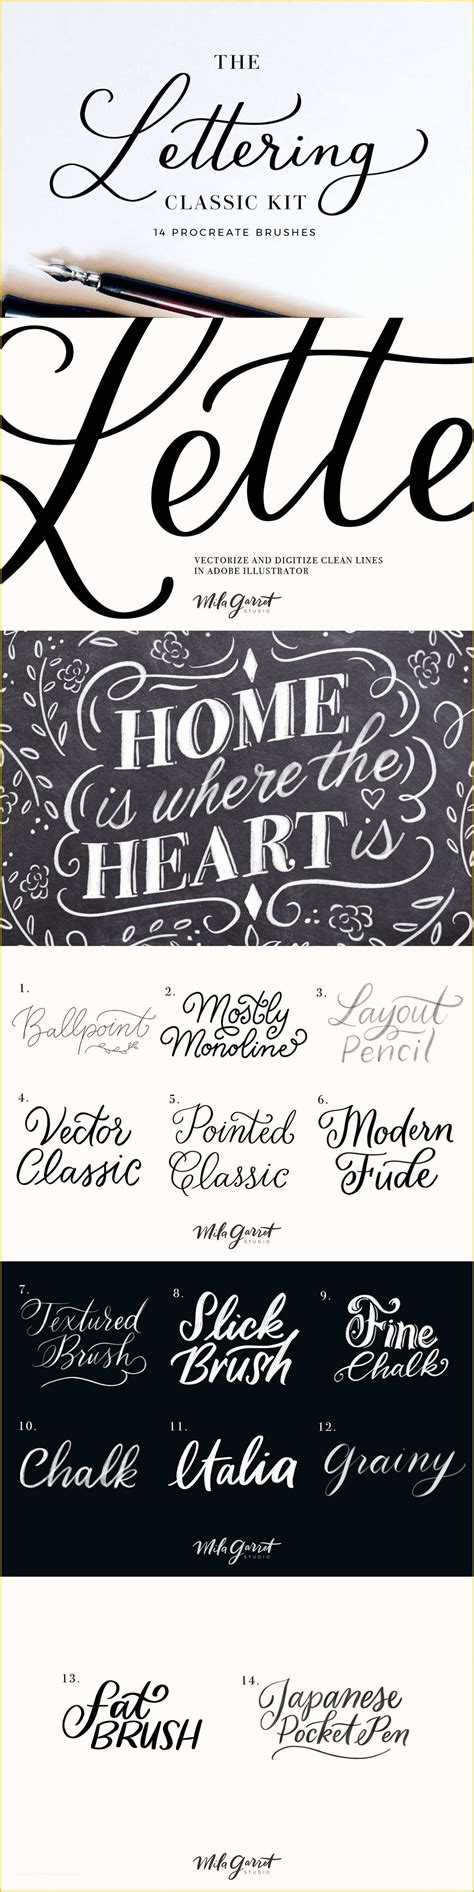 THE
Lettering
CLASSIC KIT
14 PROCREATE BRUSHES
Lette
VECTORIZE AND DIGITIZE CLEAN LINES
IN ADOBE ILLUSTRATOR
Mila Garret
STUDIO
HOME
is where the
HEART is
1.
Ballpoint
2.
Mostly
Monoline
3.
Layout
Pencil
4.
Vector
Classic
5.
Pointed
Classic
6.
Modern
Fude
Mila Garret
STUDIO
7.
Textured
Brush
8.
Slick
Brush
9.
Fine
Chalk
10.
Chalk
11.
Italia
12.
Grainy
Mila Garret
STUDIO
13.
fat
BRUSH
14.
Japanese
Pocket Pen
Mila Garret
STUDIO